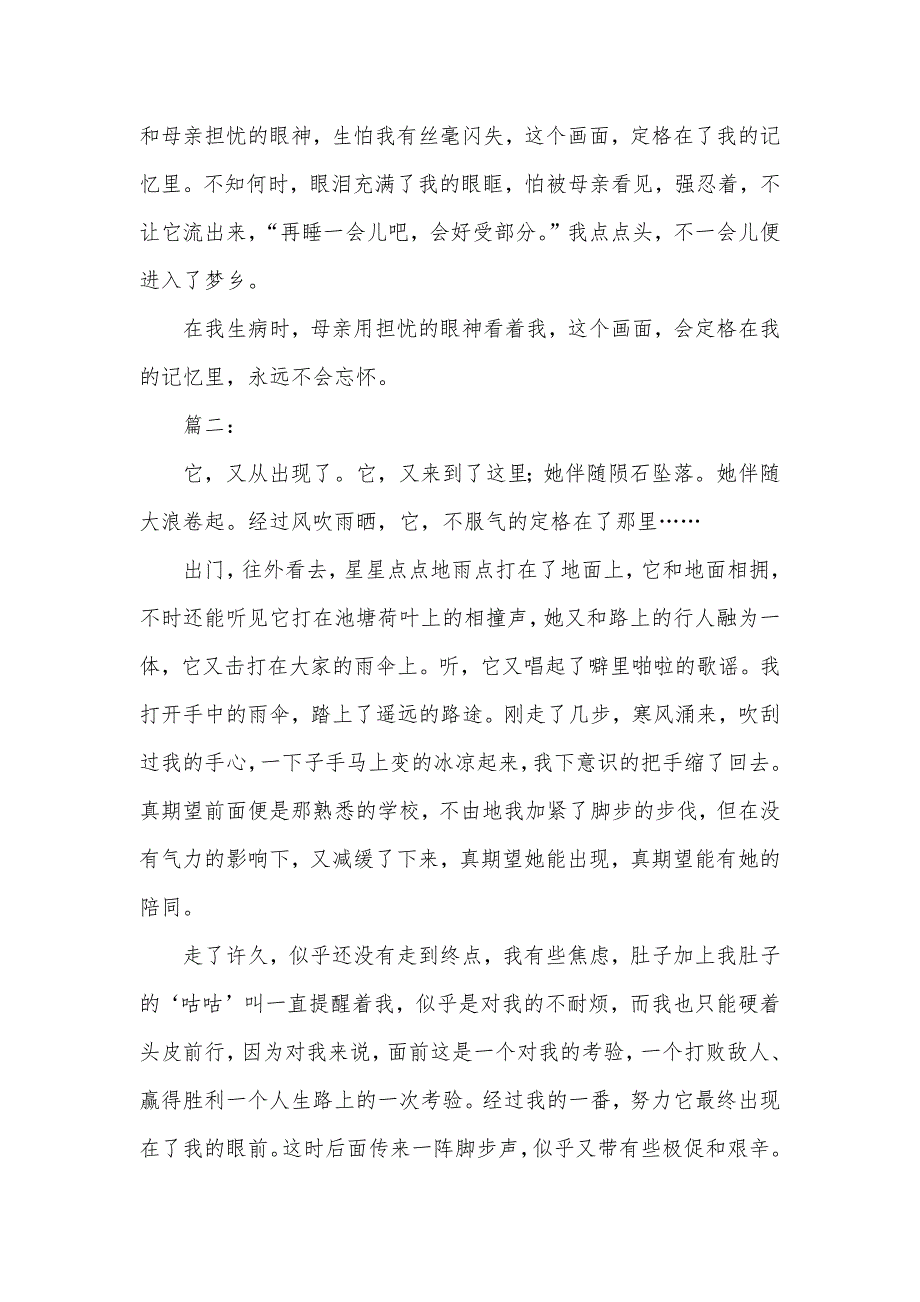 和母亲担忧的眼神，生怕我有丝毫闪失，这个画面，定格在了我的记
忆里。不知何时，眼泪充满了我的眼眶，怕被母亲看见，强忍着，不
让它流出来，“再睡一会儿吧，会好受部分。”我点点头，不一会儿便
进入了梦乡。
在我生病时，母亲用担忧的眼神看着我，这个画面，会定格在我
的记忆里，永远不会忘怀。
篇二：
它，又从出现了。它，又来到了这里；她伴随陨石坠落。她伴随
大浪卷起。经过风吹雨晒，它，不服气的定格在了那里……
出门，往外看去，星星点点地雨点打在了地面上，它和地面相拥，
不时还能听见它打在池塘荷叶上的相撞声，她又和路上的行人融为一
体，它又击打在大家的雨伞上。听，它又唱起了噼里啪啦的歌谣。我
打开手中的雨伞，踏上了遥远的路途。刚走了几步，寒风涌来，吹刮
过我的手心，一下子手马上变的冰凉起来，我下意识的把手缩了回去。
真期望前面便是那熟悉的学校，不由地我加紧了脚步的步伐，但在没
有气力的影响下，又减缓了下来，真期望她能出现，真期望能有她的
陪同。
走了许久，似乎还没有走到终点，我有些焦虑，肚子加上我肚子
的‘咕咕’叫一直提醒着我，似乎是对我的不耐烦，而我也只能硬着
头皮前行，因为对我来说，面前这是一个对我的考验，一个打败敌人、
赢得胜利一个人生路上的一次考验。经过我的一番，努力它最终出现
在了我的眼前。这时后面传来一阵脚步声，似乎又带有些极促和艰辛。